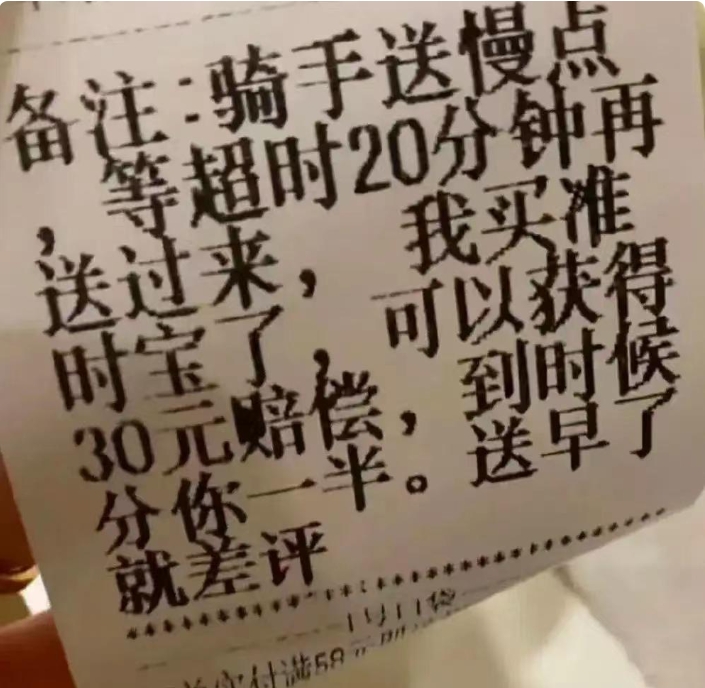 备注:骑手送慢点
,等超时20分钟再
送过来,我买准
时宝了,可以获得
30元赔偿,到时候
分你一半。送早了
就差评